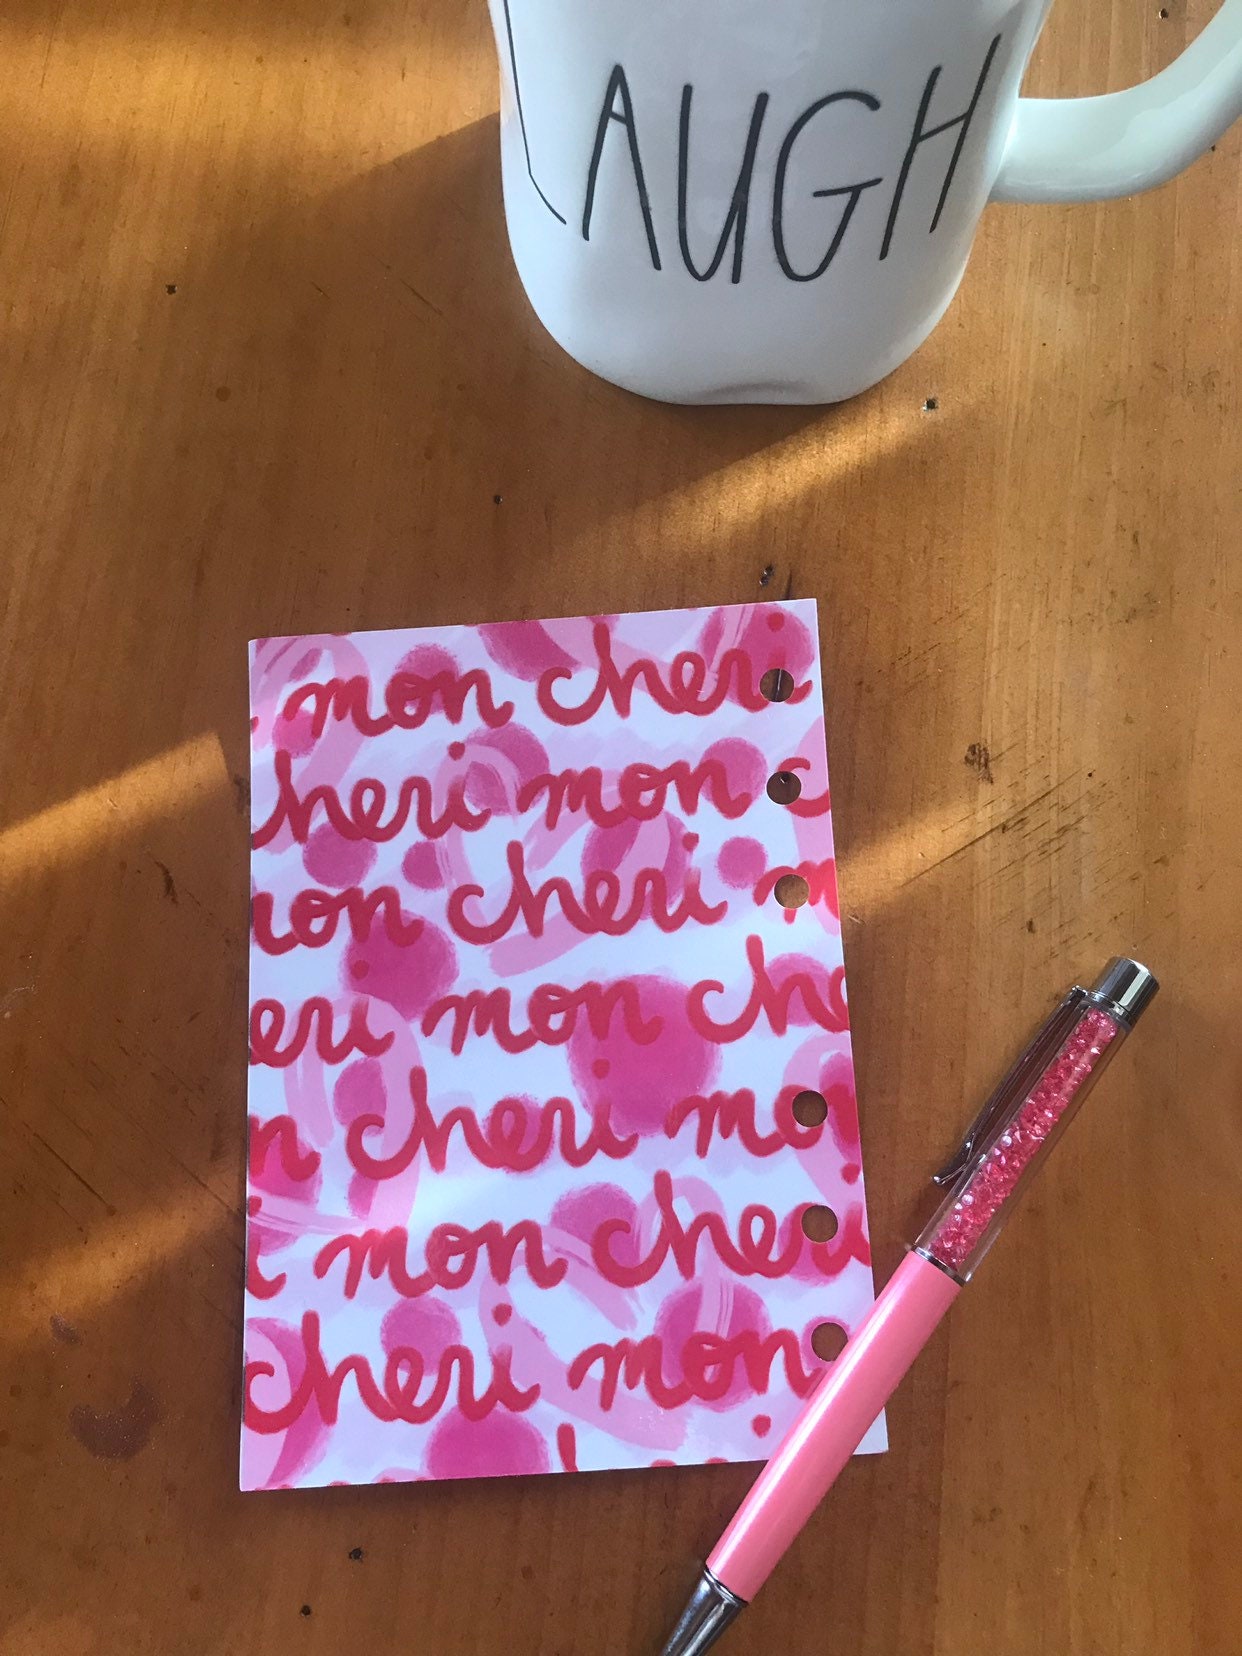 LAUGH
mon cheri
cheri mon c
mon cheri m
eri mon che
n cheri mo
i mon cheri
cheri mon